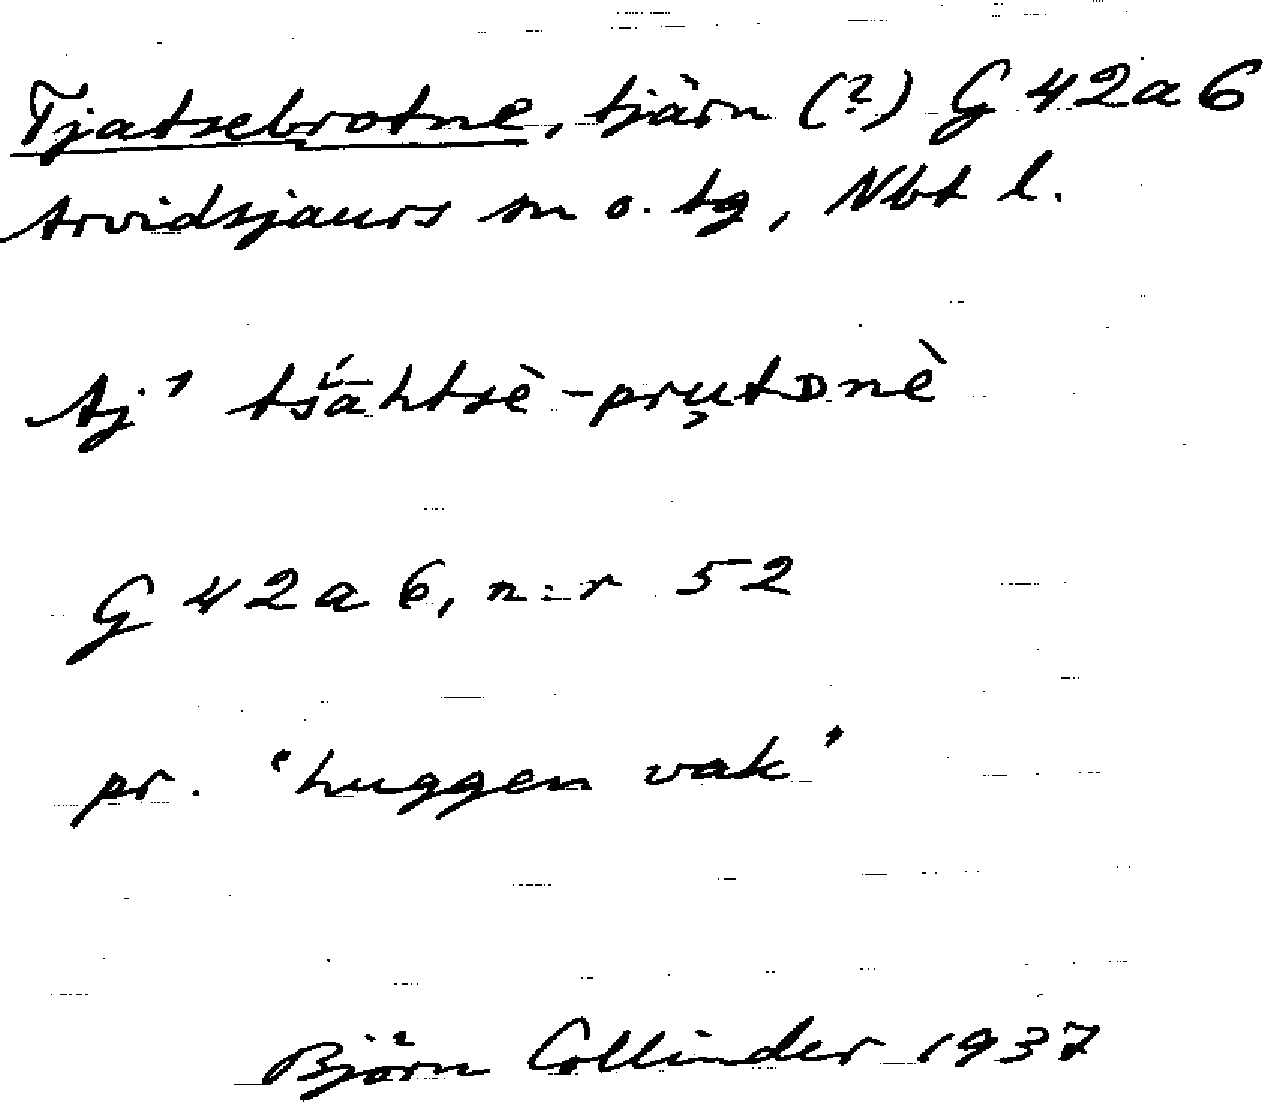 Tjatsebrotne, tjärn (?) G 42a6
Arvidsjaurs sn o. tg, Nbt l.
Aj¹ tśā́htsè-prụtᴅnè
G 42a6, n:r 52
pr. "huggen vak"
Björn Collinder 1937